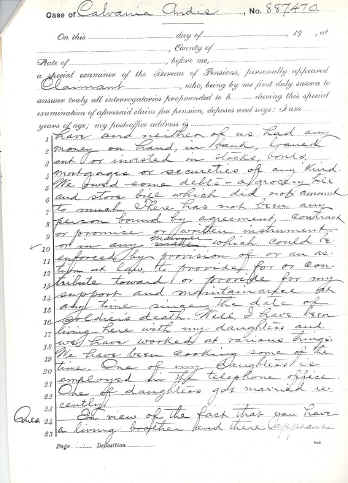 Case of Calvania Ardis, No. 887470
On this day of , 19 , at
, County of
State of , before me,
a special examiner of the Bureau of Pensions, personally appeared
Claimant , who, being by me first duly sworn to
answer truly all interrogatories propounded to h during this special
examination of aforesaid claim for pension, deposes and says: I am
years of age; my post-office address is
1 her and neither of us had any
2 money on hand, in bank, loaned
3 out or invested in stocks, bonds,
4 mortgages or securities of any kind.
5 We owed some debts a grocery bill
6 and store bill which did not amount
7 to much. There has not been any
8 person bound by agreement, contract
9 or promise or written instrument
10 or in any manner which could be
11 enforced by provision of or an
12 at law, to provide for or con
13 tribute toward or provide for my
14 support and maintainance at
15 any time since the date of
16 soldier's death. Well I have been
17 living here with my daughters and
18 we have worked at various things.
19 We have been cooking some of the
20 time. One of my daughters is
21 employed in the telephone office.
22 One of daughters got married re
23 cently.
24 Ques In view of the fact that you have
25 a living brother and there appears
Page Deposition